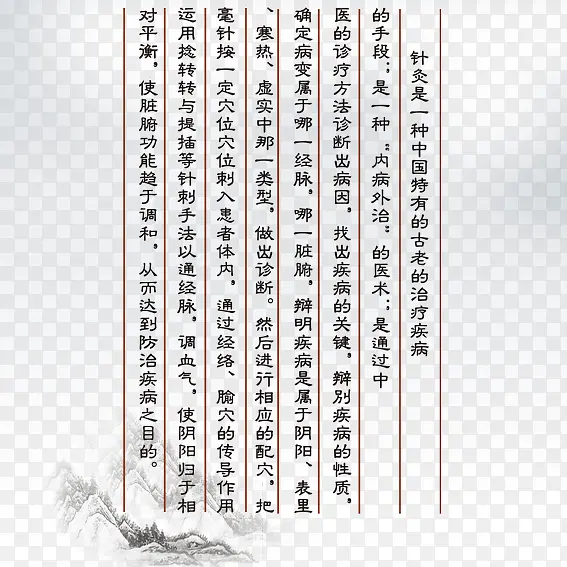 针灸是一种中国特有的古老的治疗疾病
的手段；是一种“内病外治”的医术；是通过中
医的诊疗方法诊断出病因，找出疾病的关键，辩别疾病的性质，
确定病变属于哪一经脉，哪一脏腑，辩明疾病是属于阴阳、表里
、寒热、虚实中那一类型，做出诊断。然后进行相应的配穴，把
毫针按一定穴位穴位刺入患者体内，通过经络、腧穴的传导作用
运用捻转转与提插等针刺手法以通经脉，调血气，使阴阳归于相
对平衡，使脏腑功能趋于调和，从而达到防治疾病之目的。